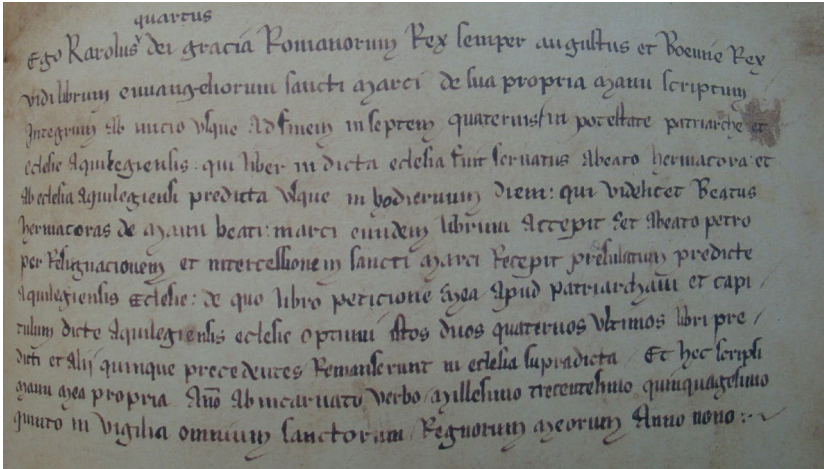 quartus
Ego Karolus dei gracia Romanorum Rex semper augustus et Boemie Rex
vidi librum euuangeliorum sancti Marci de sua propria manu scriptum
Integrum Ab inicio vsque Ad finem in septem quaternis in potestate patriarche et
eclesie Aquilegiensis : qui liber in dicta eclesia fuit servatus Abeato hermacora et
Ab eclesia Aquilegiensi predicta vsque in hodiernum diem : qui videlicet Beatus
hermacoras de manu beati marci eundem librum Accepit et Abeato petro
per Resignacionem et intercessionem sancti Marci Recepit presulatum predicte
Aquilegiensis Eclesie : de quo libro peticione mea Apud patriarcham et capi /
tulum dicte Aquilegiensis eclesie optinui istos duos quaternos vltimos libri pre /
dicti et Alij quinque precedentes Remanserunt in eclesia supradicta / Et hec scripsi
manu mea propria Año Ab incarnato verbo Millesimo trecentesimo quinquagesimo
quinto in vigilia omnium sanctorum / Regnorum meorum Anno nono :